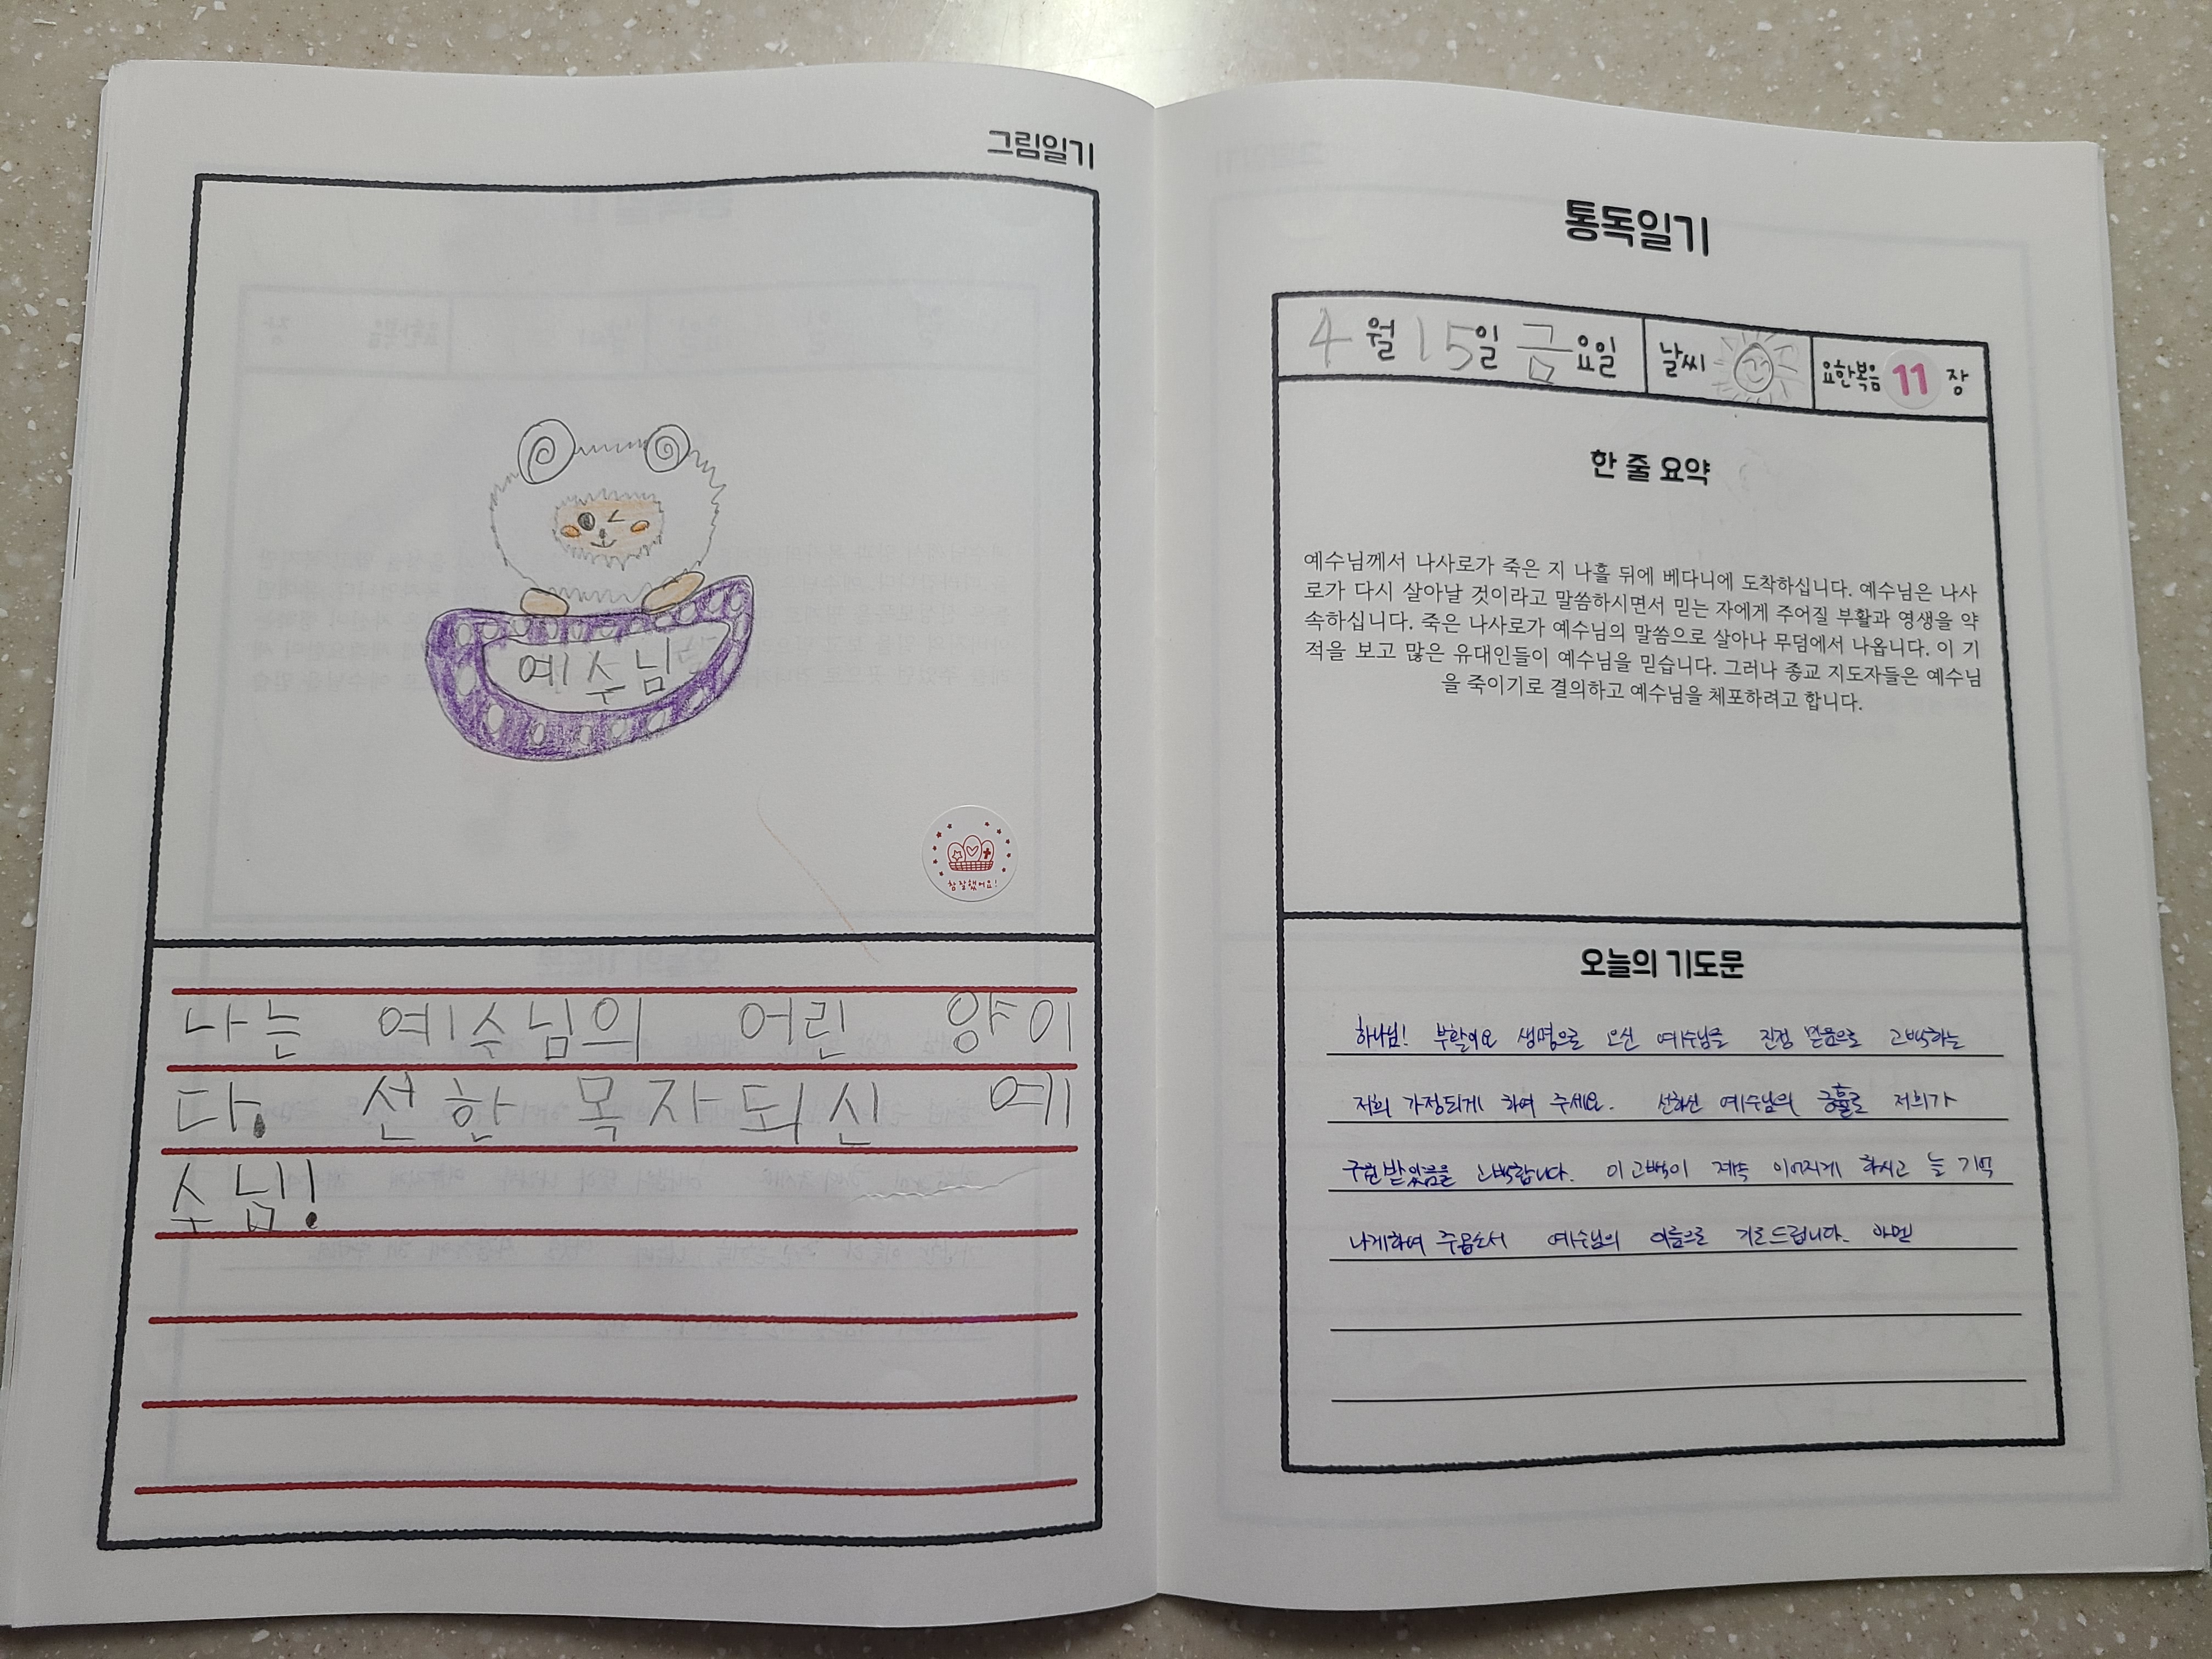 그림일기
예수님
참 잘했어요!
나는 예수님의 어린 양이
다. 선한 목자되신 예
수님!
통독일기
4월 15일 금요일 날씨 요한복음 11 장
한 줄 요약
예수님께서 나사로가 죽은 지 나흘 뒤에 베다니에 도착하십니다. 예수님은 나사
로가 다시 살아날 것이라고 말씀하시면서 믿는 자에게 주어질 부활과 영생을 약
속하십니다. 죽은 나사로가 예수님의 말씀으로 살아나 무덤에서 나옵니다. 이 기
적을 보고 많은 유대인들이 예수님을 믿습니다. 그러나 종교 지도자들은 예수님
을 죽이기로 결의하고 예수님을 체포하려고 합니다.
오늘의 기도문
하나님! 부활이요 생명으로 오신 예수님을 진정 믿음으로 고백하는
저희 가정되게 하여 주세요. 선하신 예수님의 긍휼로 저희가
구원받았음을 고백합니다. 이 고백이 계속 이어지게 하시고 늘 기억
나게하여 주옵소서 예수님의 이름으로 기도드립니다. 아멘